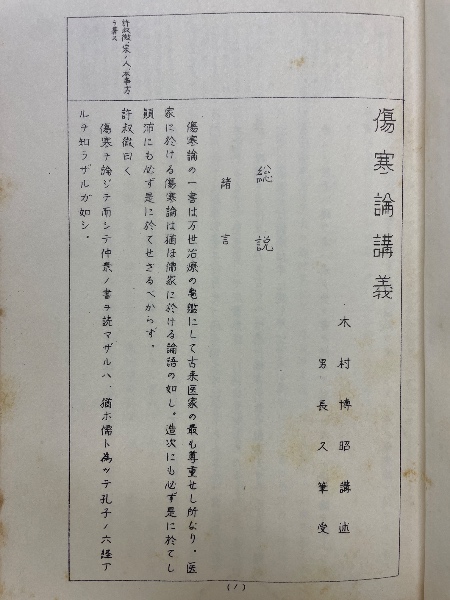 傷寒論講義
木村博昭講述
男長久筆受
総説
緒言
傷寒論の一書は万世治療の亀鑑にして古来医家の最も尊重せし所なり。医
家に於ける傷寒論は猶ほ儒家に於ける論語の如し。造次にも必ず是に於てし
顛沛にも必ず是に於てせざるべからず。
許叔微曰く
傷寒ヲ論ジテ而シテ仲景ノ書ヲ読マザルハ、猶ホ儒ト為ツテ孔子ノ六経ア
ルヲ知ラザルガ如シ。
許叔微、宋ノ人、本事方
ヲ著ス
(1)